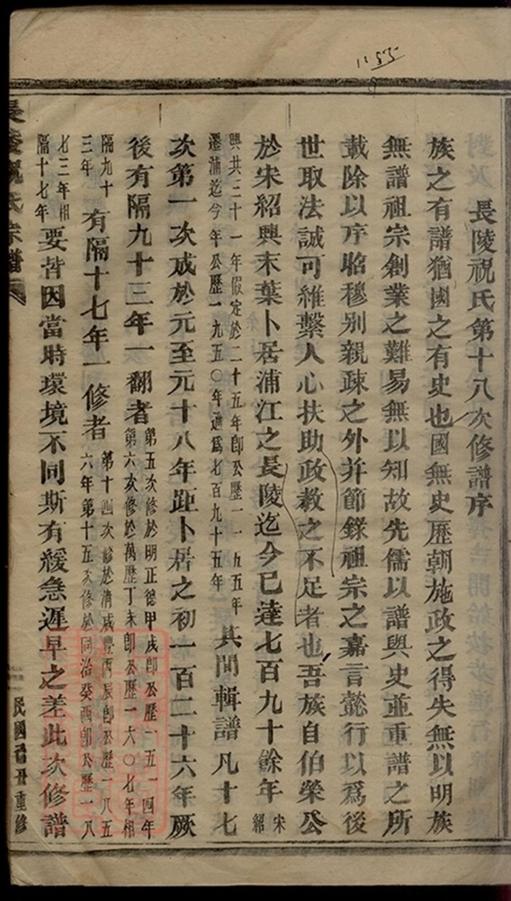 長陵祝氏第十八次修譜序
族之有譜猶國之有史也國無史歷朝施政之得失無以明族
無譜祖宗創業之難易無以知故先儒以譜與史並重譜之所
載除以序昭穆別親疎之外幷節錄祖宗之嘉言懿行以爲後
世取法誠可維繫人心扶助政教之不足者也吾族自伯榮公
於宋紹興末葉卜居浦江之長陵迄今已達七百九十餘年宋紹
興共三十一年假定於二十五年卽公歷一一五五年
遷浦迄今年公歷一九五〇年適爲七百九十五年
其間輯譜凡十七
次第一次成於元至元十八年距卜居之初一百二十六年厥
後有隔九十三年一翻者
第五次修於明正德甲戌卽公歷一五一四年
第六次修於萬歷丁未卽公歷一六〇七年相
隔九十
三年
有隔十七年一修者
第十四次修於清咸豐丙辰卽公歷一八五
六年第十五次修於同治癸酉卽公歷一八
七三年相
隔十七年
要皆因當時環境不同斯有緩急遲早之差此次修譜
長陵祝氏宗譜
民國己丑重修
1155